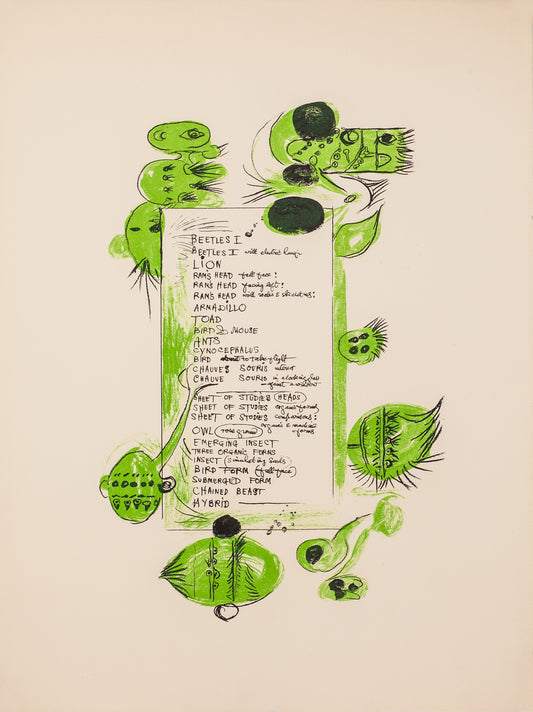 BEETLES I
BEETLES II with electric lamp.
LION
RAM'S HEAD full face:
RAM'S HEAD facing left:
RAM'S HEAD with rocks & skeletons:
ARMADILLO
TOAD
BIRD & MOUSE
ANTS
CYNOCEPHALUS
BIRD about to take flight
CHAUVES SOURIS
CHAUVE SOURIS in
against a window
SHEET OF STUDIES (HEADS)
SHEET OF STUDIES organic forms
SHEET OF STUDIES comparisons:
organic & machine
forms
OWL
EMERGING INSECT
THREE ORGANIC FORMS
INSECT (simulating seeds)
BIRD FORM (full face)
SUBMERGED FORM
CHAINED BEAST
HYBRID